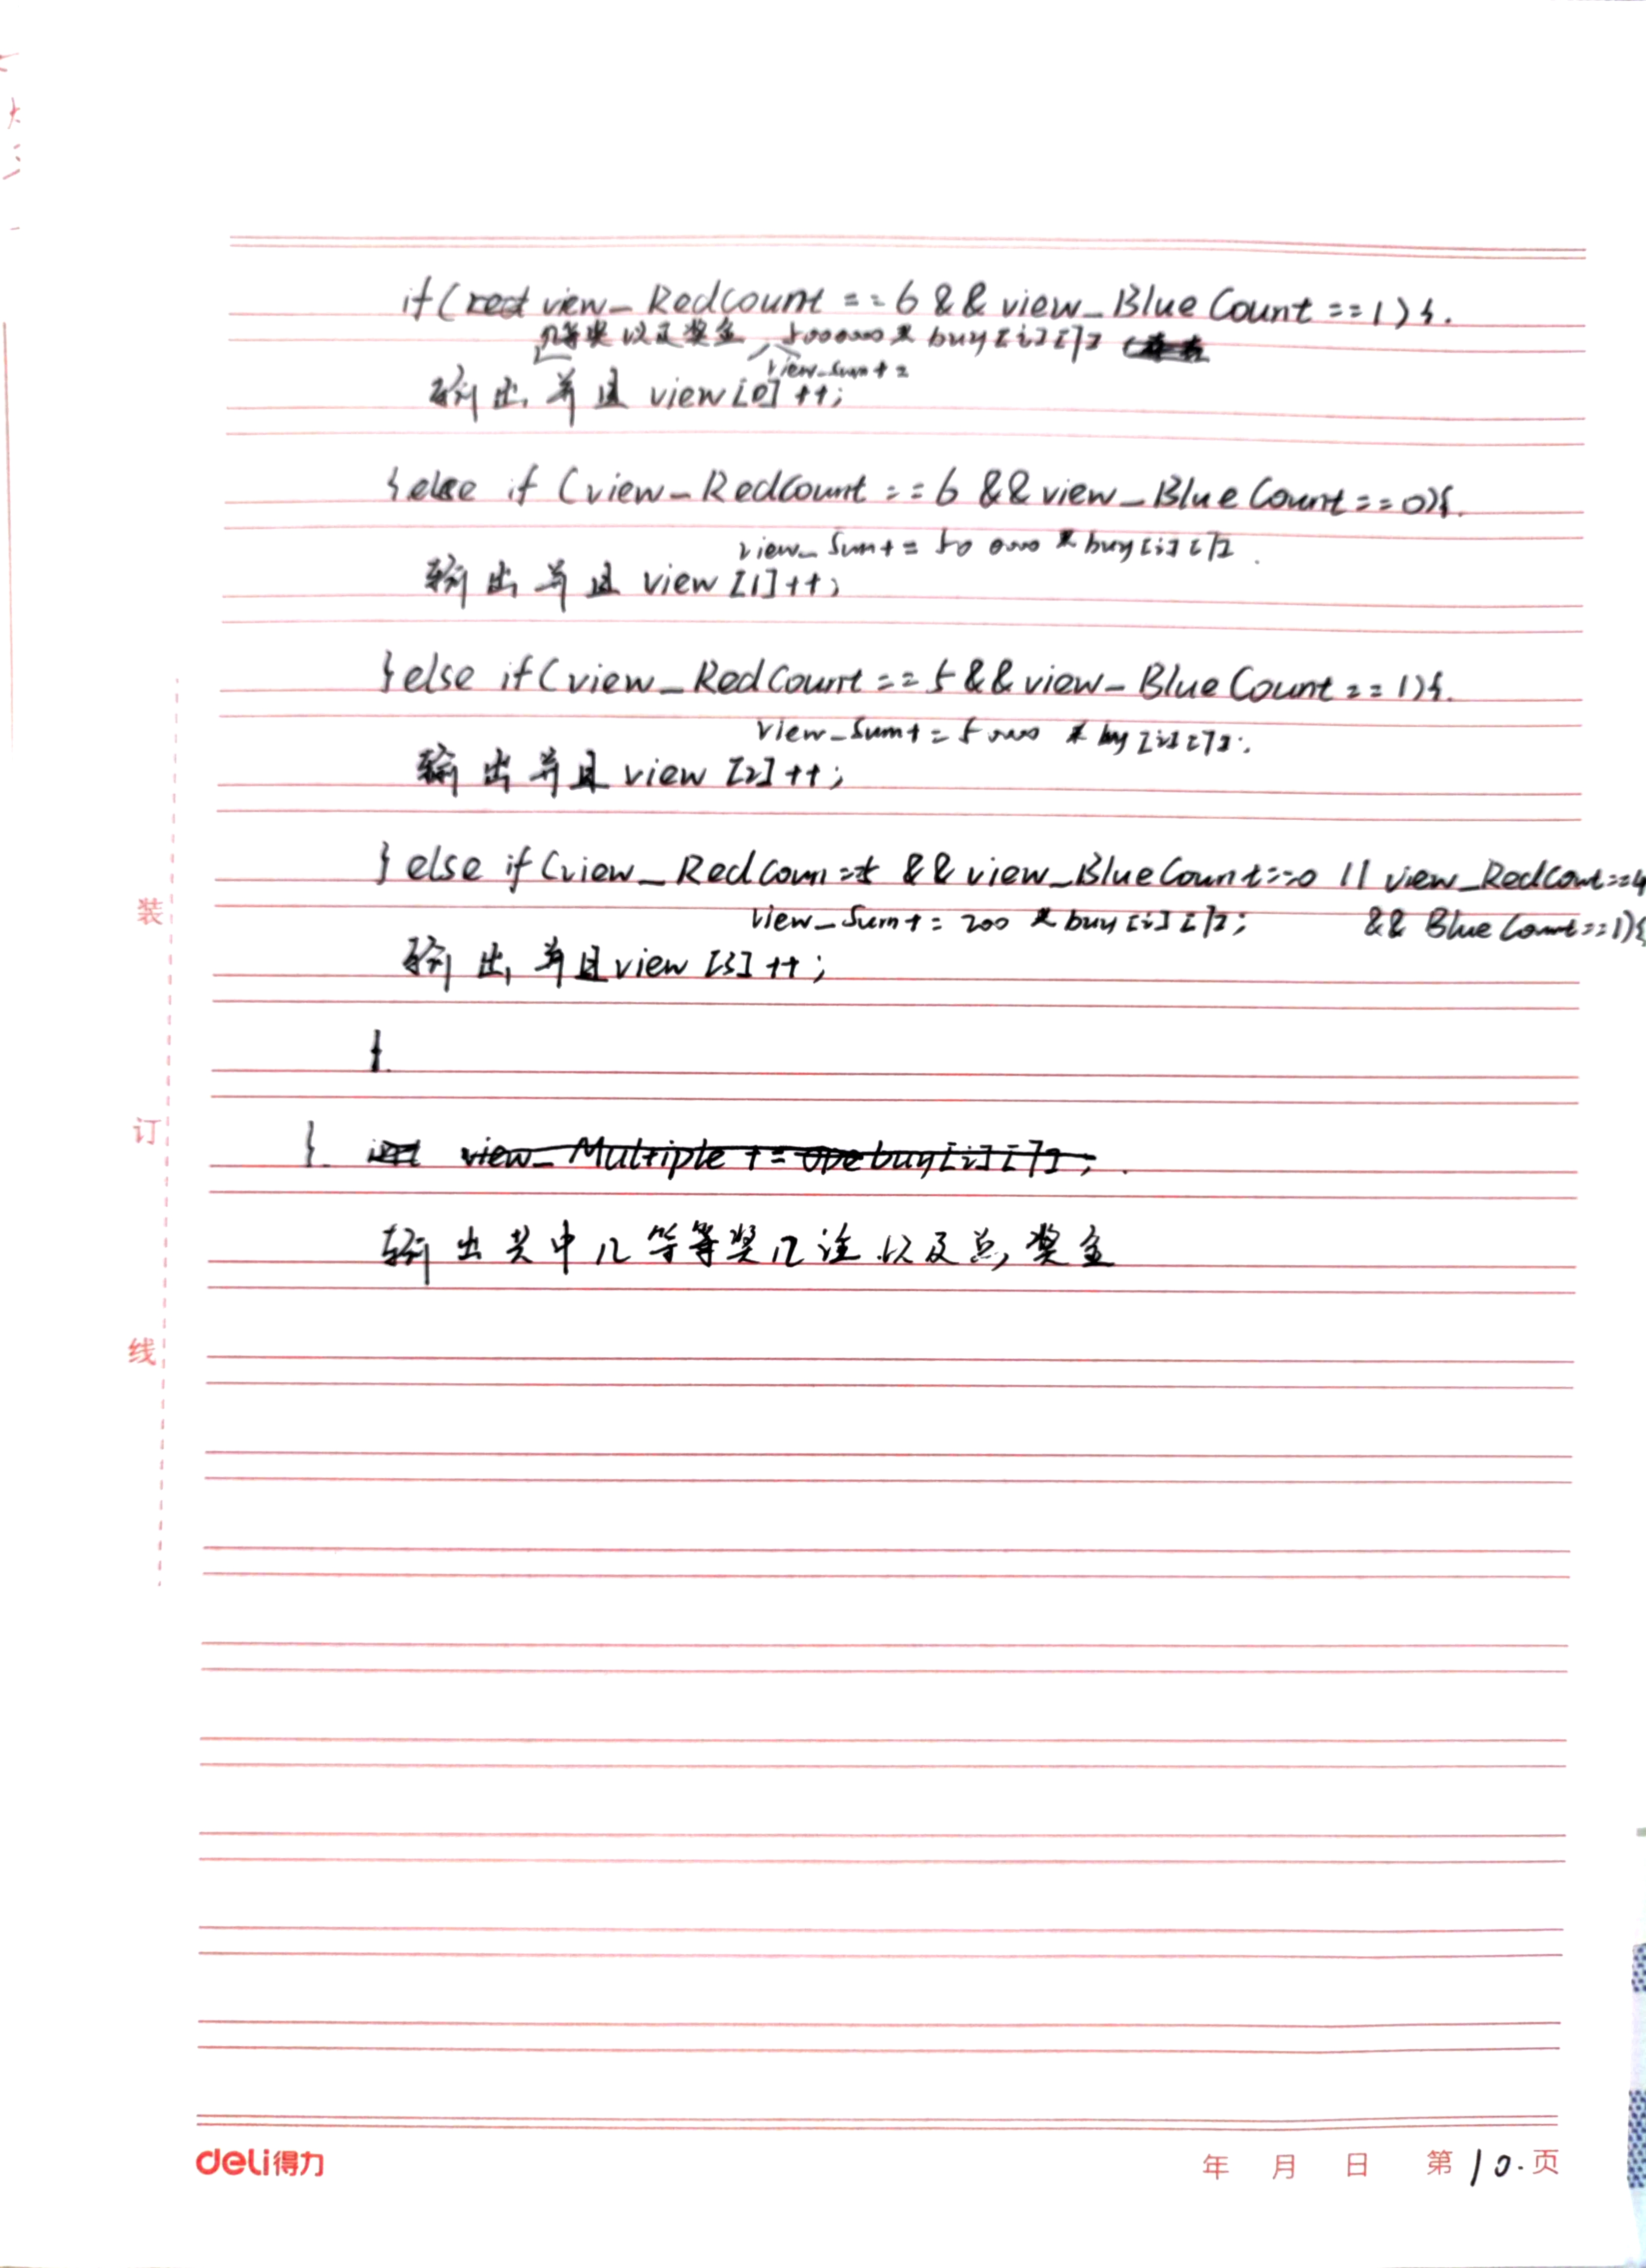 if(view_RedCount == 6 && view_BlueCount == 1){.
几等奖以及奖金 5000000 * buy[i][7]
view_sum +=
输出 并且 view[0]++;
}else if (view_RedCount == 6 && view_BlueCount == 0){.
view_Sum += 50 0000 * buy[i][7]
输出 并且 view[1]++;
}else if(view_RedCount == 5 && view_BlueCount == 1){.
view_Sum += 5000 * by[i][7];
输出并且 view[2]++;
}else if(view_RedCoun == 5 && view_BlueCount == 0 || view_RedCount == 4
view_Sum += 200 * buy[i][7]; && BlueCount == 1){
输出 并且view[3]++;
}
} int view_Multiple += buy[i][7];
输出共中几等等奖几注以及总奖金
装
订
线
deli得力 年 月 日 第10.页